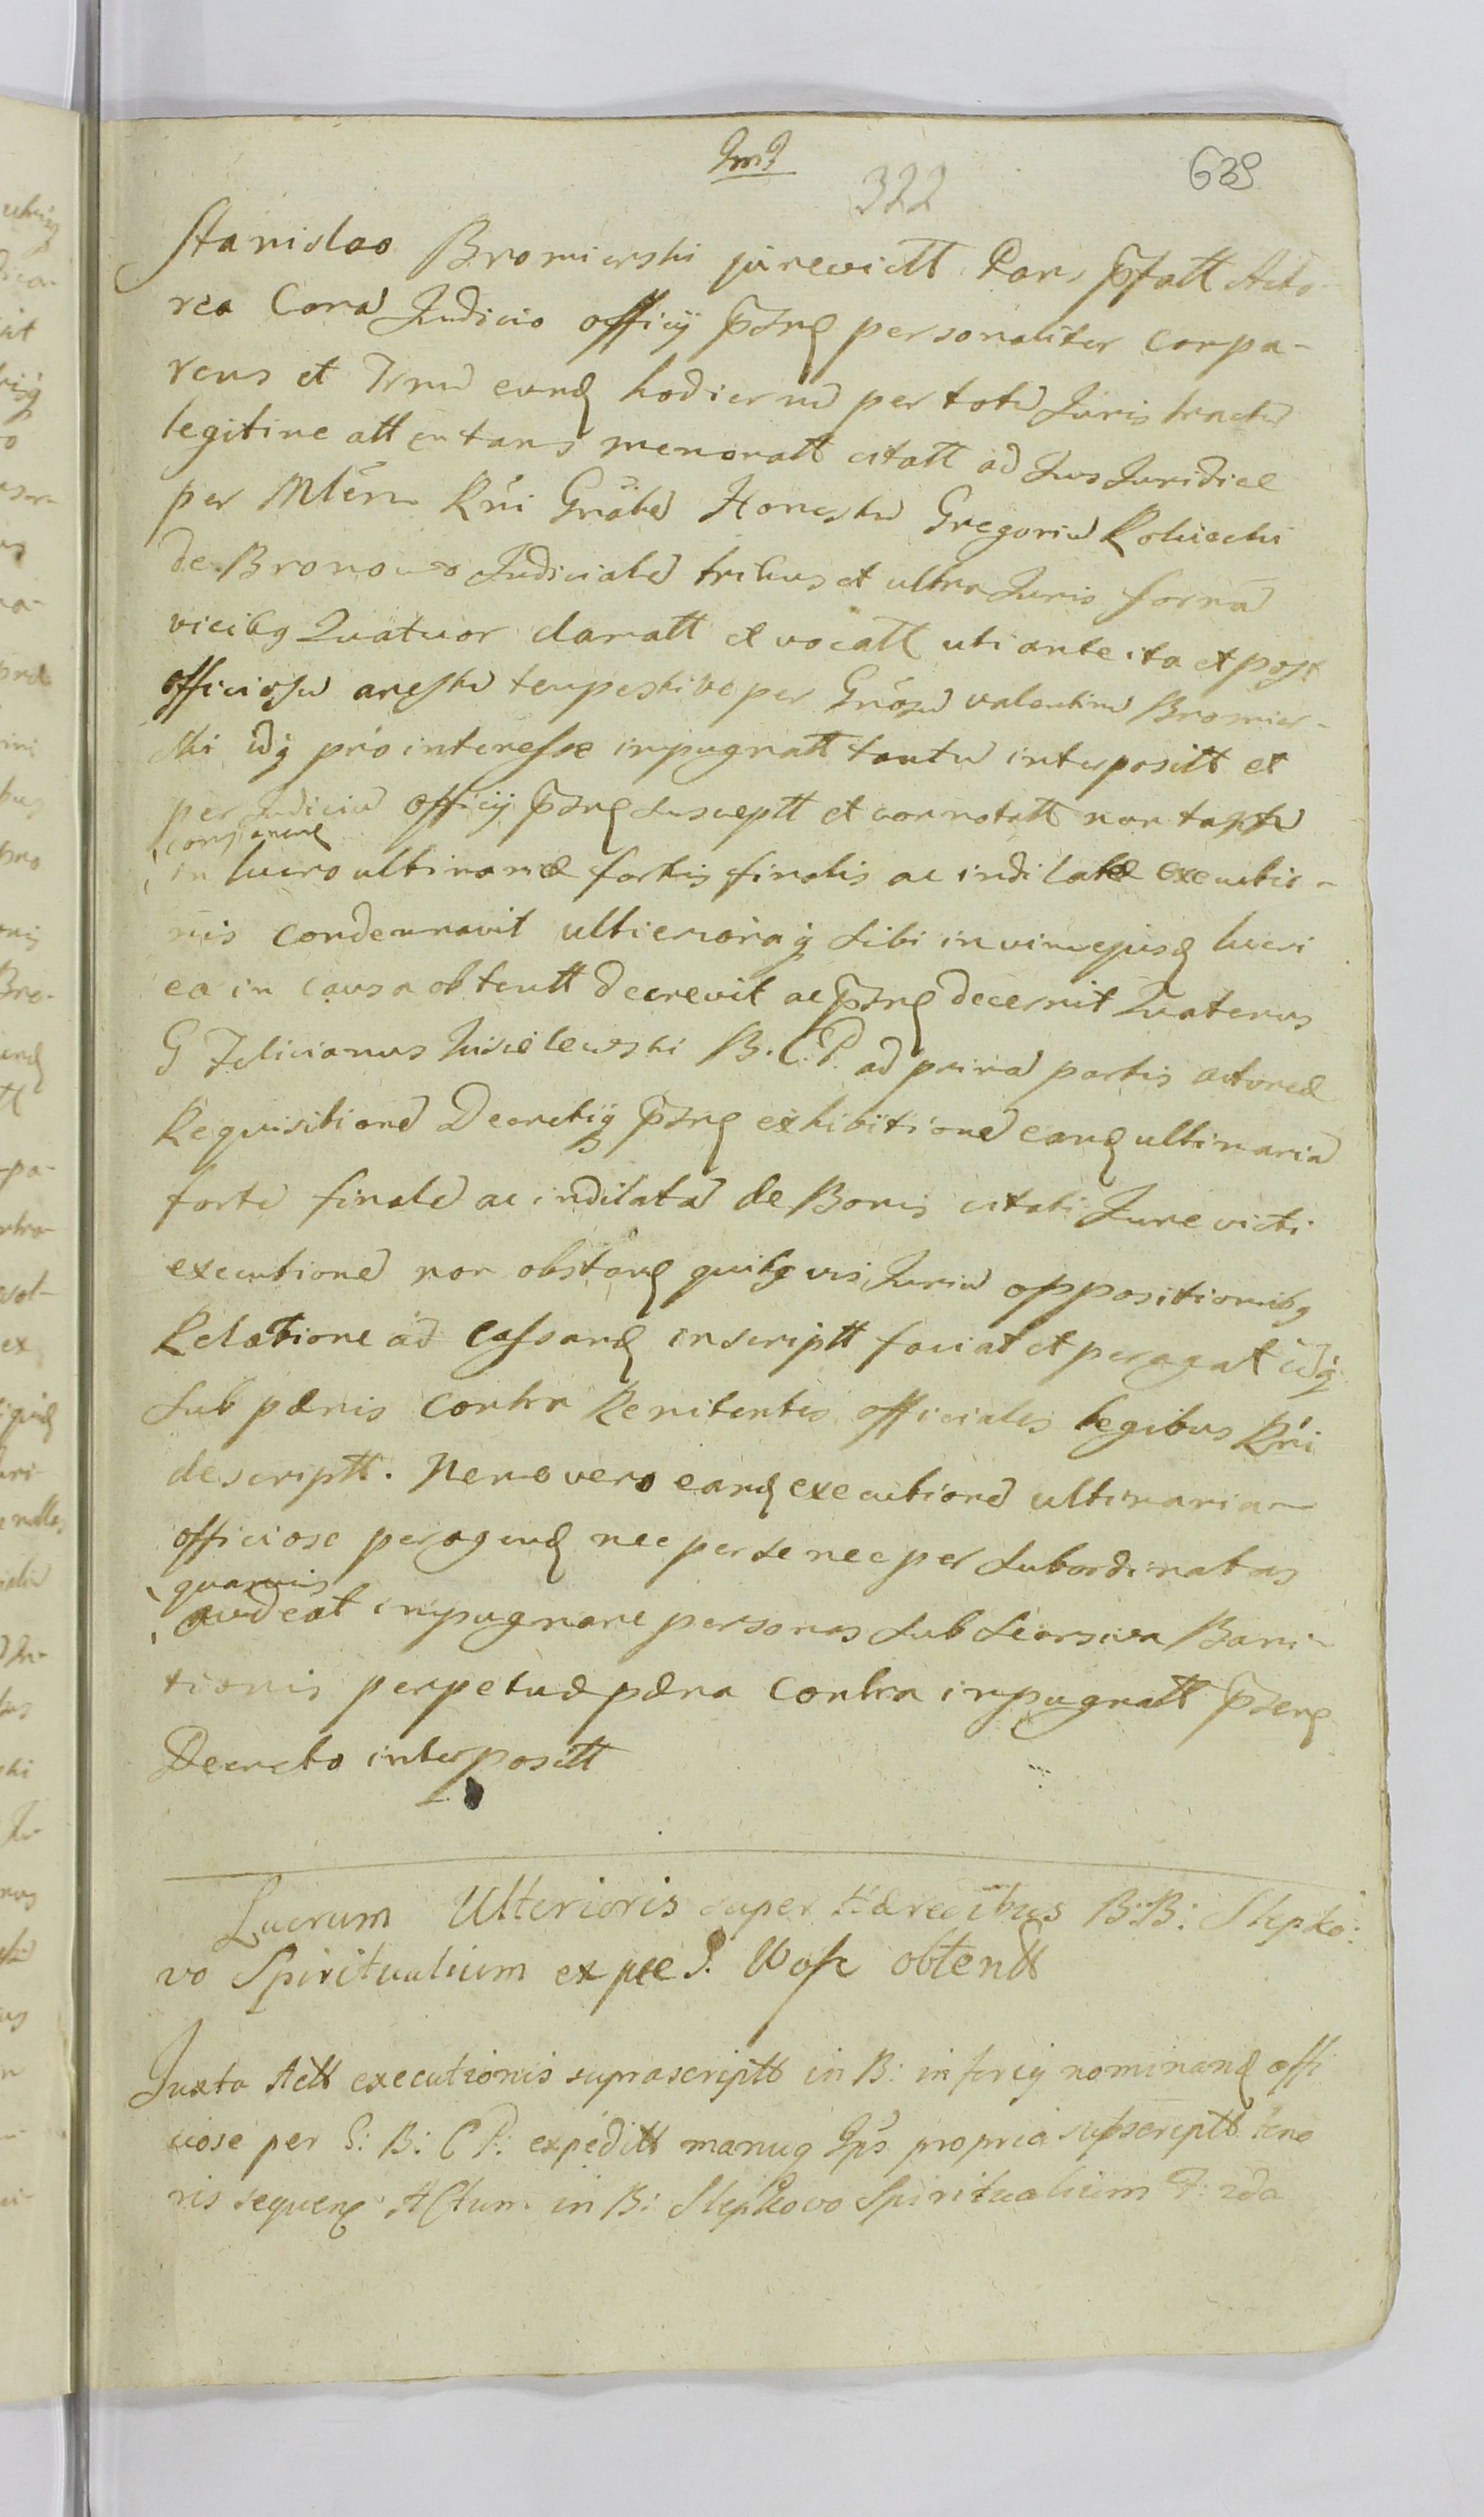 322
639
Stanislao Bromierski jurevictt Pars pfatt Acto-
rea Cora Judicio officij pñs personaliter conpa-
rens et Trnu eund hodiernu per totu Juris tractu
legitime attentans memoratt citatt ad Jus Juridice
per Mlem Rni Gnalem Honestu Gregoriu
de Bronowo Judiciale tribus et ultra Juris forma
vicibq Quatuor clamatt et vocatt uti ante ita et post
officiosu arestu tempestive per Gnosu valentinu Bromier-
ski idq prointeresse inpugnatt tantu interpositt et
per Judiciu officij pñs susceptt et connotatt non
comparend
in lucro ultimariæ sortis finalis ac indilatæ executio-
nis condemnavit ulterioraq sibi in vim ejusd lucri
ea in causa obtentt decrevit ac pñs decernit Quatenus
G Felicianus B. C. P. ad prima partis actoreæ
Requisitione Decretiq pñs exhibitione eand ultimaria
forte finale ac indilata de Bonis citati Jure victi
executione non obstand quibq vis Juriu oppositionibq
Relatione ad Cassand inscriptt faciat et peragat idq
sub pænis contra Renitentes officiales legibus Rni
descriptt. Nemo vero eand executione ultimariam
officiose peragend nec per se nec per subordinatas
quamvis
audeat inpugnare personas sub seorsiva Bani-
tionis perpetuæ pæna contra inpugnatt pñs
Decreto interpositt
Lucrum Ulterioris super Hæredibus B: B: Slepko:
vo Spiritualium ex pte obtentt
Juxta Actt executionis suprascriptt in B: inferiq nominand offi
ciose per G: B: C P: expeditt manuq Ips propria subscriptt teno
ris sequen Actum in B: Slepkovo Spiritualium